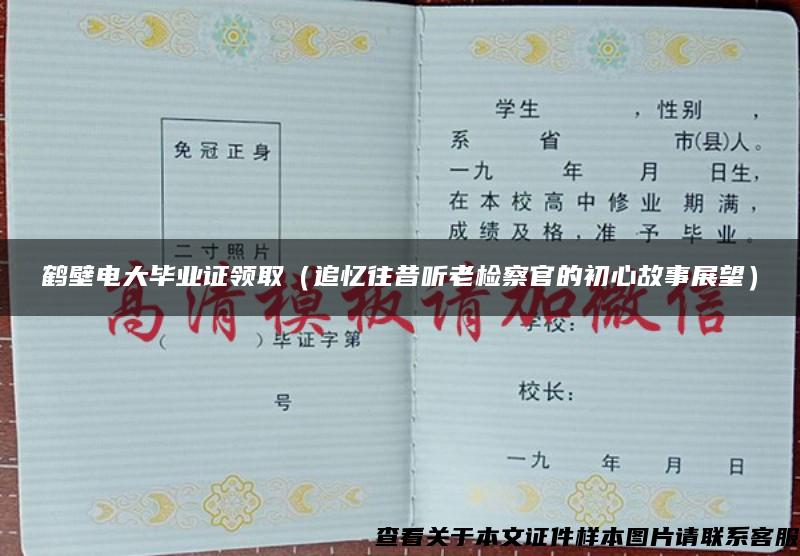 免冠正身
二寸照片
( )毕证字第
号
学生 ,性别 ,
系 省 市(县)人。
一九 年 月 日生,
在本校高中修业期满,
成绩及格,准予毕业
鹤壁电大毕业证领取（追忆往昔听老检察官的初心故事展望）
高清模板请加微信
学校:
校长:
一九 年 月 日
查看关于本文证件样本图片请联系客服